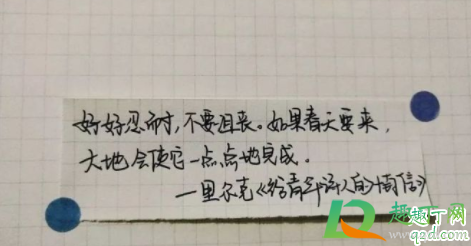 好好忍耐，不要沮丧。如果春天要来，
大地会使它一点点地完成。
—里尔克《给青年诗人的十封信》
趣趣丁网
qqzad.com